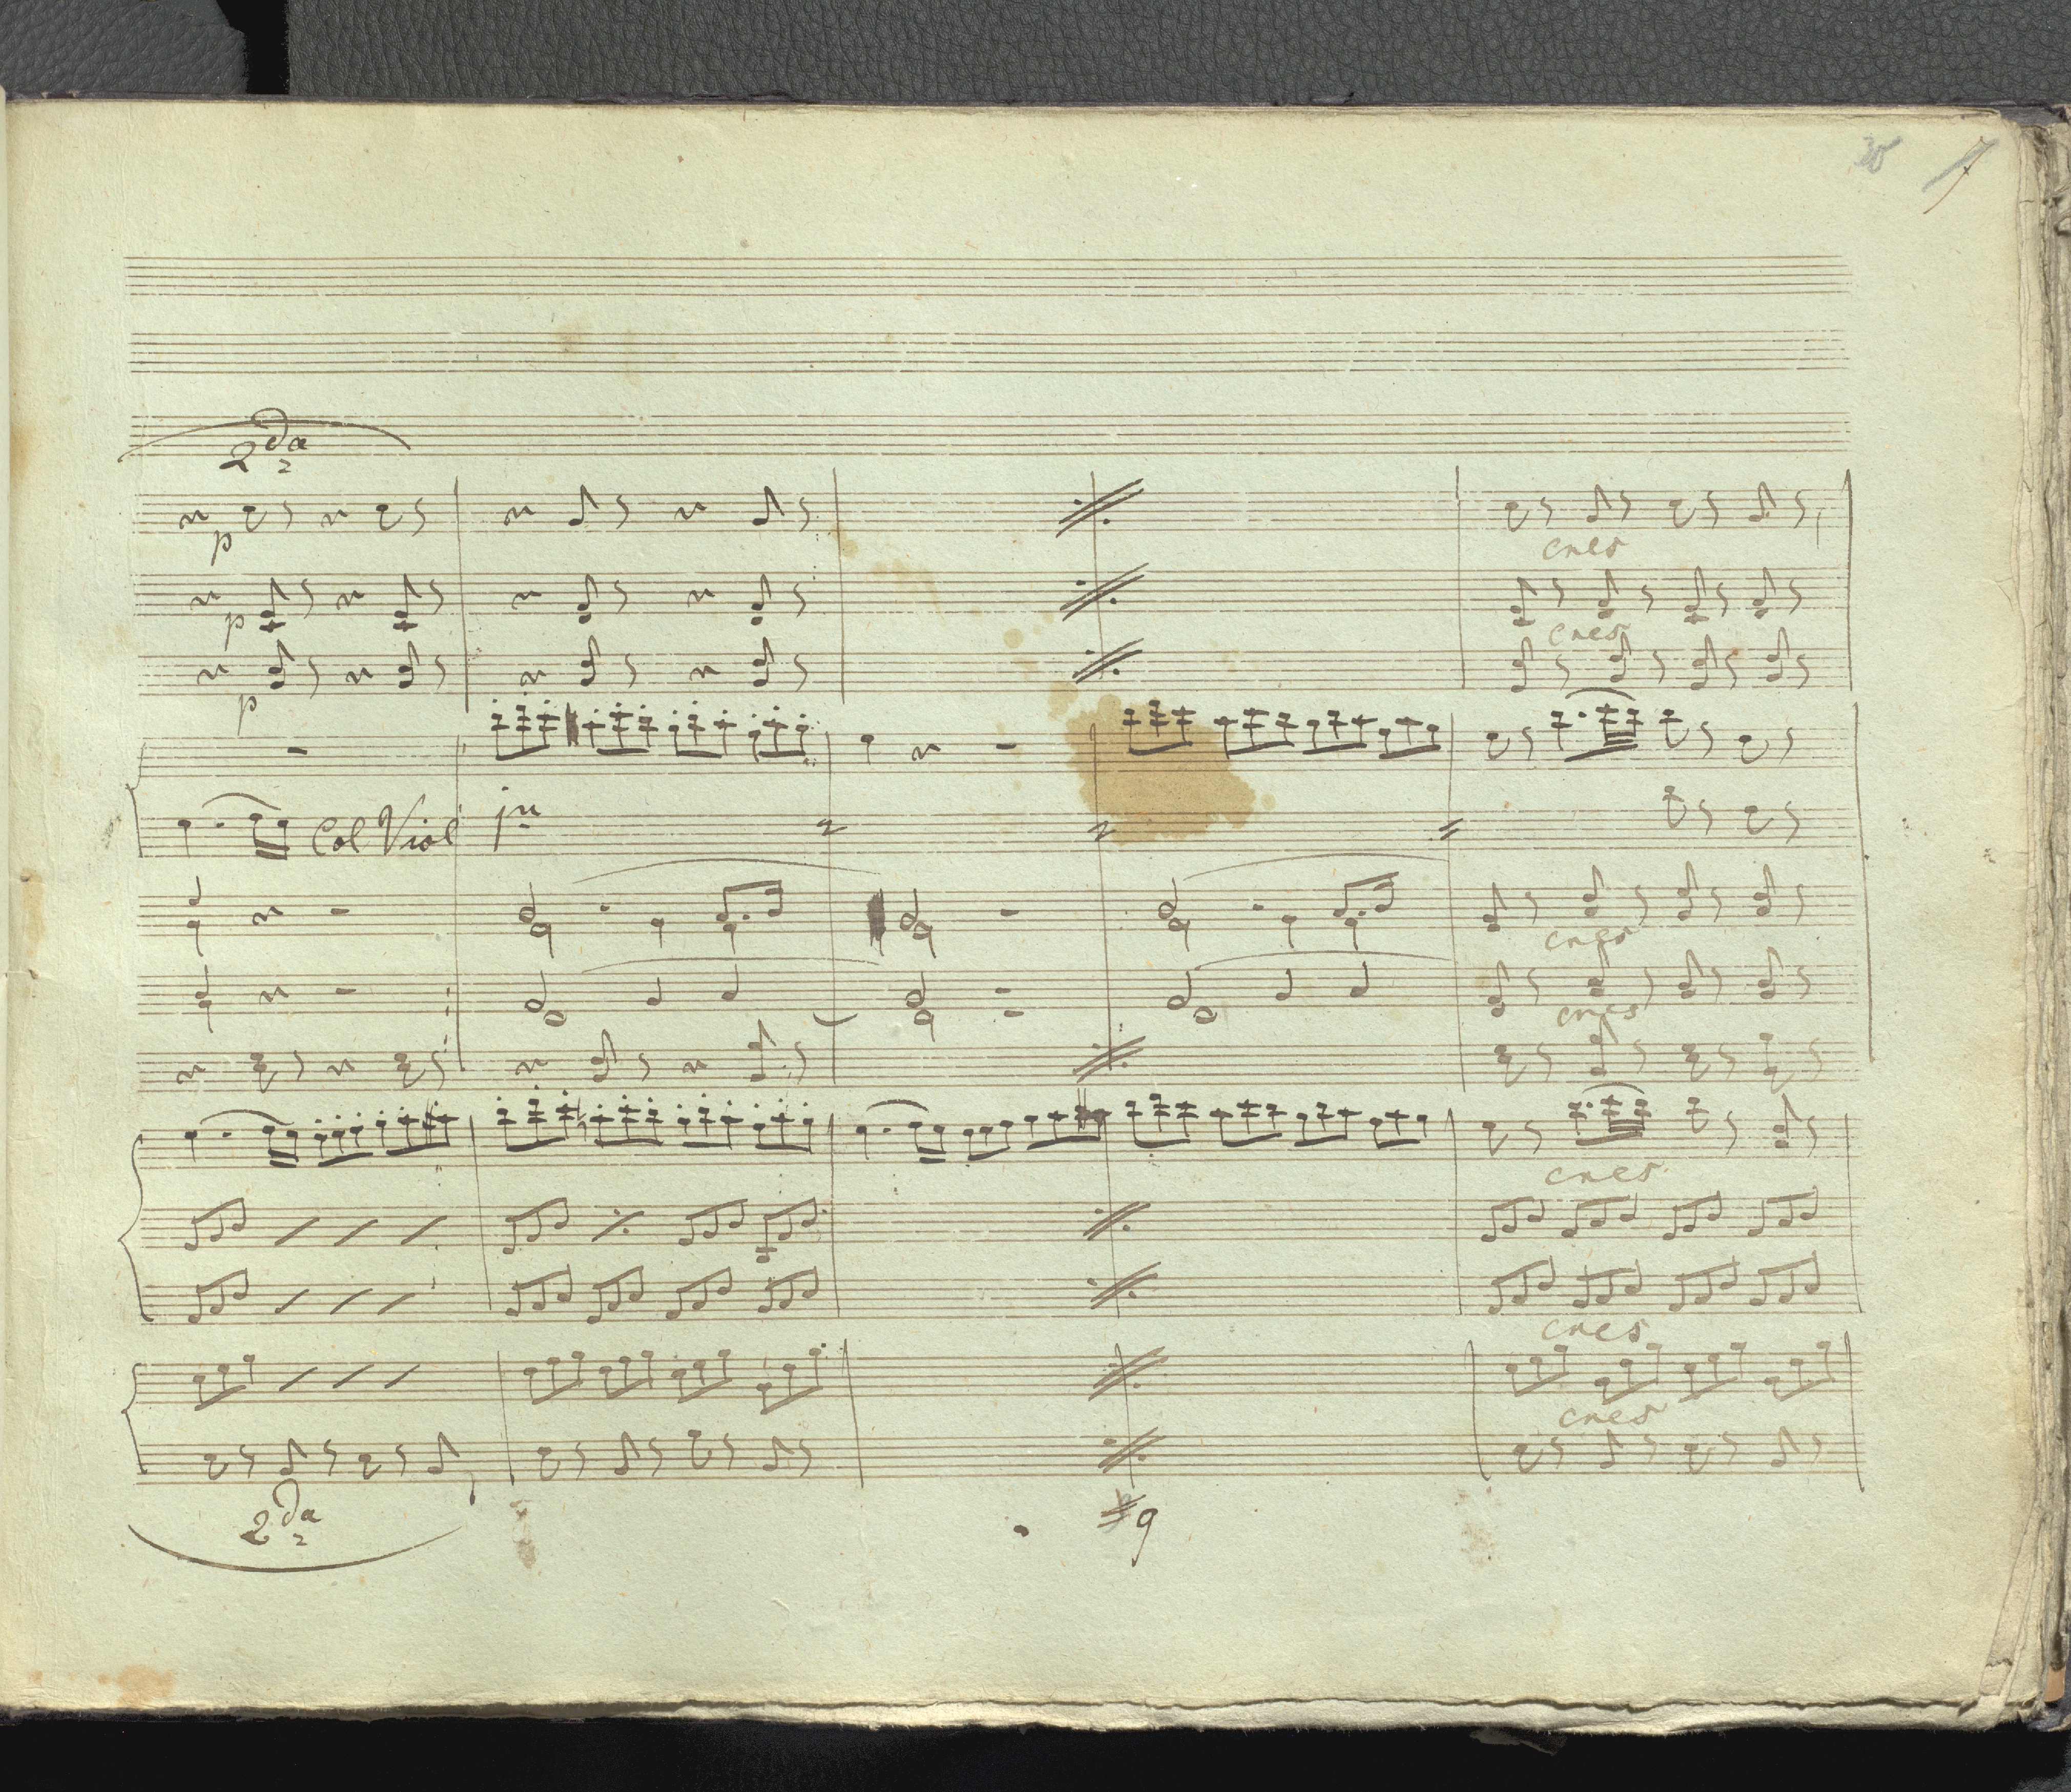 7
2da
p
cres
p
cres
p
Col Viol pmo
cres
cres
cres
cres
cres
2da
9